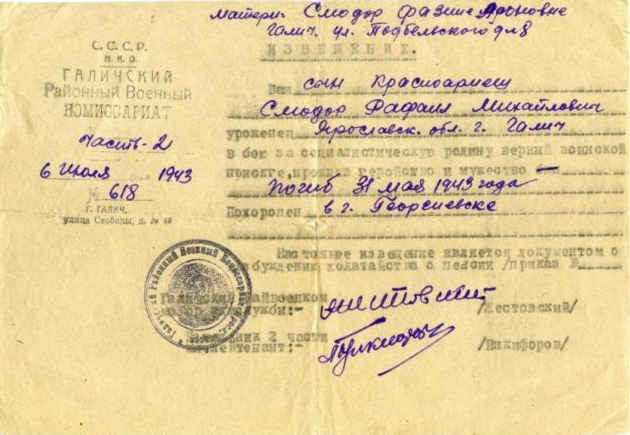 матери. Смодор Фазине Ароновне
Галич. ул. Подбельского д 8
ИЗВЕЩЕНИЕ.
С.С.С.Р.
Н.К.О.
ГАЛИЧСКИЙ
Районный Военный
КОМИССАРИАТ
Часть-2
6 Июля 1943
№ 618
Г. ГАЛИЧ,
улица Свободы, д.
Ваш сын Красноармеец
Смодор Рафаил Михайлович
уроженец Ярославск. обл. г. Галич
в бою за социалистическую родину верный воинской
присяге, проявив геройство и мужество
Погиб 31 мая 1943 года
Похоронен в г. Георгиевске
Настоящее извещение является документом о
возбуждении ходатайства о пенсии /приказ
Галичский Райвоенком
службы:-
/Жестовский/
2 части
лейтенант:-
/Никифоров/